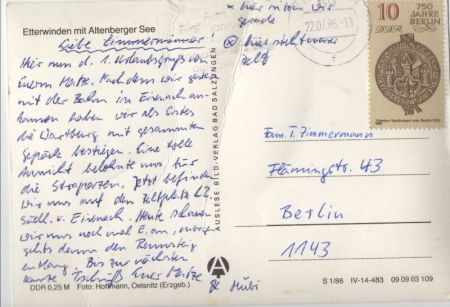 Etterwinden mit Altenberger See
Liebe Zimmermänner!
Hier nun d. 1. Urlaubsgruß von
Eurem Matze. Nachdem wir gestern
mit der Bahn in Eisenach an-
kommen haben wir als Erstes
die Wartburg mit gesammten
Gepäck bestiegen. Eine tolle
Aussicht belohnte uns für
die Strapazen. Jetzt befinden
wir uns auf den Zeltplatz
südl. v. Eisenach. Heute schauen
wir uns noch mal E. an, morgen
gehts dann den Rennsteig
entlang. Bis zur nächsten
Karte Tschüß Euer Matze
& Mübi
hier sitzen wir
gerade
hier steht unser
Zelt
22.07.86.-13
10
DDR
750
JAHRE
BERLIN
Fam. T. Zimmermann
Flämingstr. 43
Berlin
1143
AUSLESE BILD-VERLAG BAD SALZUNGEN
DDR 0,25 M Foto: Hoffmann, Oelsnitz (Erzgeb.)
S 1/86 IV-14-483 09 09 03 109